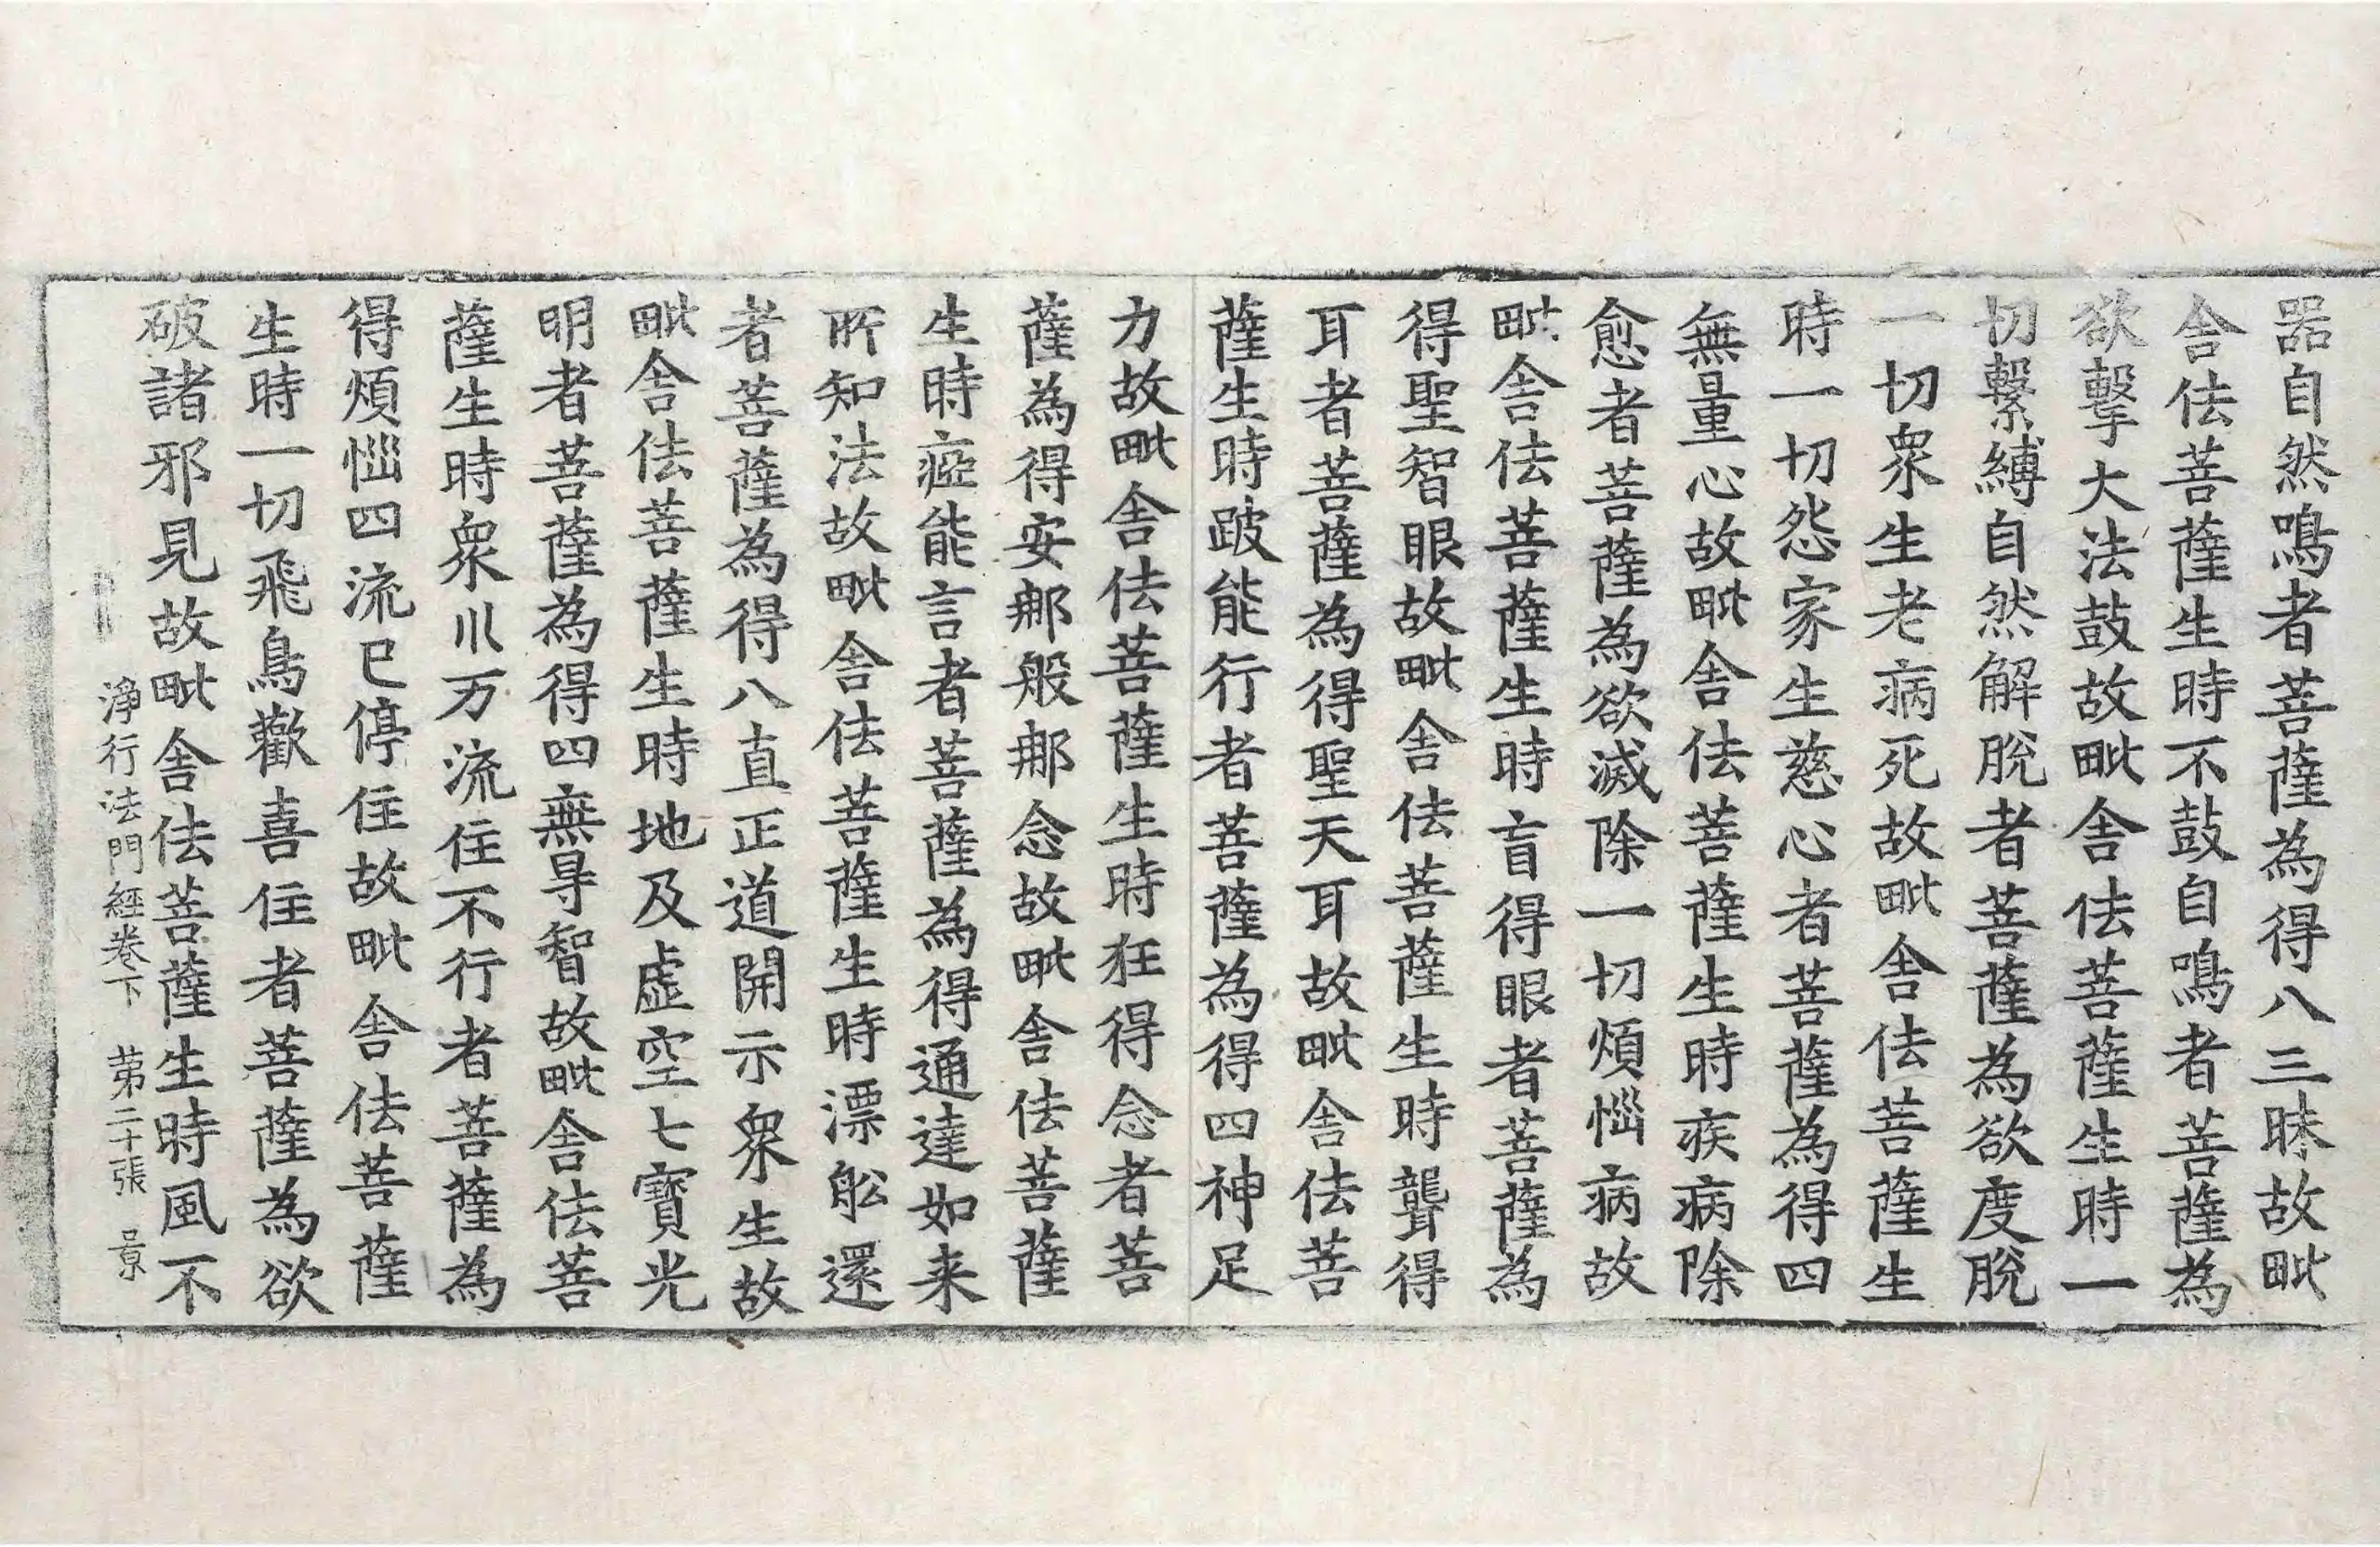 器自然鳴者菩薩為得八三昧故毗
舍佉菩薩生時不鼓自鳴者菩薩為
欲擊大法鼓故毗舍佉菩薩生時一
切繫縛自然解脫者菩薩為欲度脫
一切衆生老病死故毗舍佉菩薩生
時一切怨家生慈心者菩薩為得四
無量心故毗舍佉菩薩生時疾病除
愈者菩薩為欲滅除一切煩惱病故
毗舍佉菩薩生時盲得眼者菩薩為
得聖智眼故毗舍佉菩薩生時聾得
耳者菩薩為得聖天耳故毗舍佉菩
薩生時跛能行者菩薩為得四神足
力故毗舍佉菩薩生時狂得念者菩
薩為得安那般那念故毗舍佉菩薩
生時瘂能言者菩薩為得通達如来
所知法故毗舍佉菩薩生時漂舩還
者菩薩為得八直正道開示衆生故
毗舍佉菩薩生時地及虛空七寶光
明者菩薩為得四無㝵智故毗舍佉菩
薩生時衆川万流住不行者菩薩為
得煩惱四流已停住故毗舍佉菩薩
生時一切飛鳥歡喜住者菩薩為欲
破諸邪見故毗舍佉菩薩生時風不
淨行法門經卷下 第二十張 景